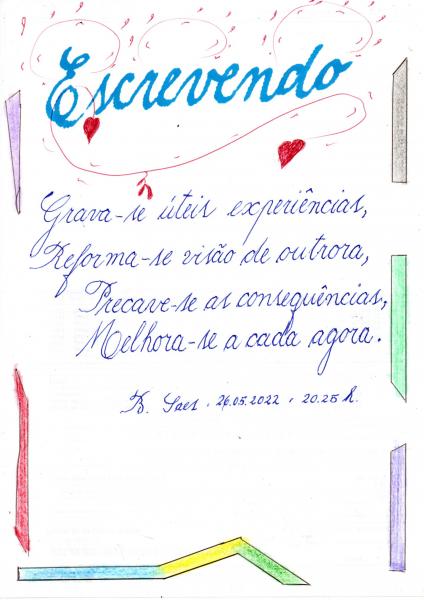 Escrevendo
Grava-se úteis experiências,
Reforma-se visão de outrora,
Precave-se as consequências,
Melhora-se a cada agora.
B. Saes, 26.05.2022, 20.25 h.